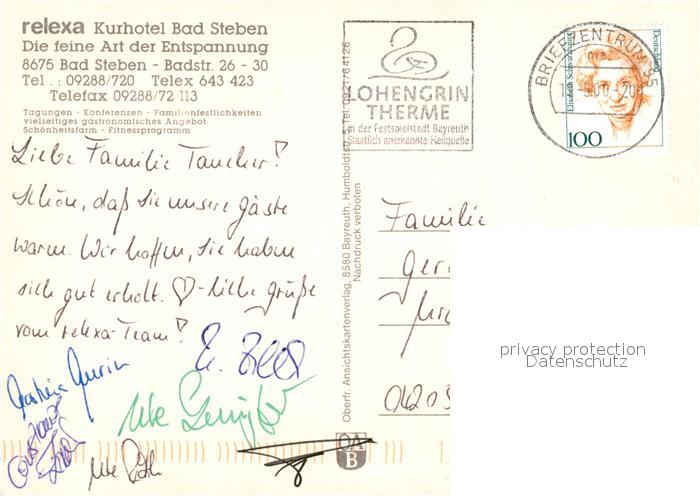 relexa Kurhotel Bad Steben
Die feine Art der Entspannung
8675 Bad Steben - Badstr. 26 - 30
Tel .: 09288/720 Telex 643 423
Telefax 09288/72 113
Tagungen - Konferenzen - Familienfestlichkeiten
vielseitiges gastronomisches Angebot.
Schönheitsfarm - Fitnessprogramm
Liebe Familie Taucher!
Schön, daß Sie unsere Gäste
waren. Wir hoffen, Sie haben
sich gut erholt. ♡-liche Grüße
vom relexa-Team!
Ute
LOHENGRIN
THERME
in der Festspielstadt Bayreuth
Staatlich anerkannte Heilquelle
BRIEFZENTRUM 95
Deutschland
Elisabeth Schwarzhaupt
100
Oberfr. Ansichtskartenverlag, 8580 Bayreuth, Humboldtstr. 5, Tel.
Nachdruck verboten
OA
B
Familie
Ger
privacy protection
Datenschutz